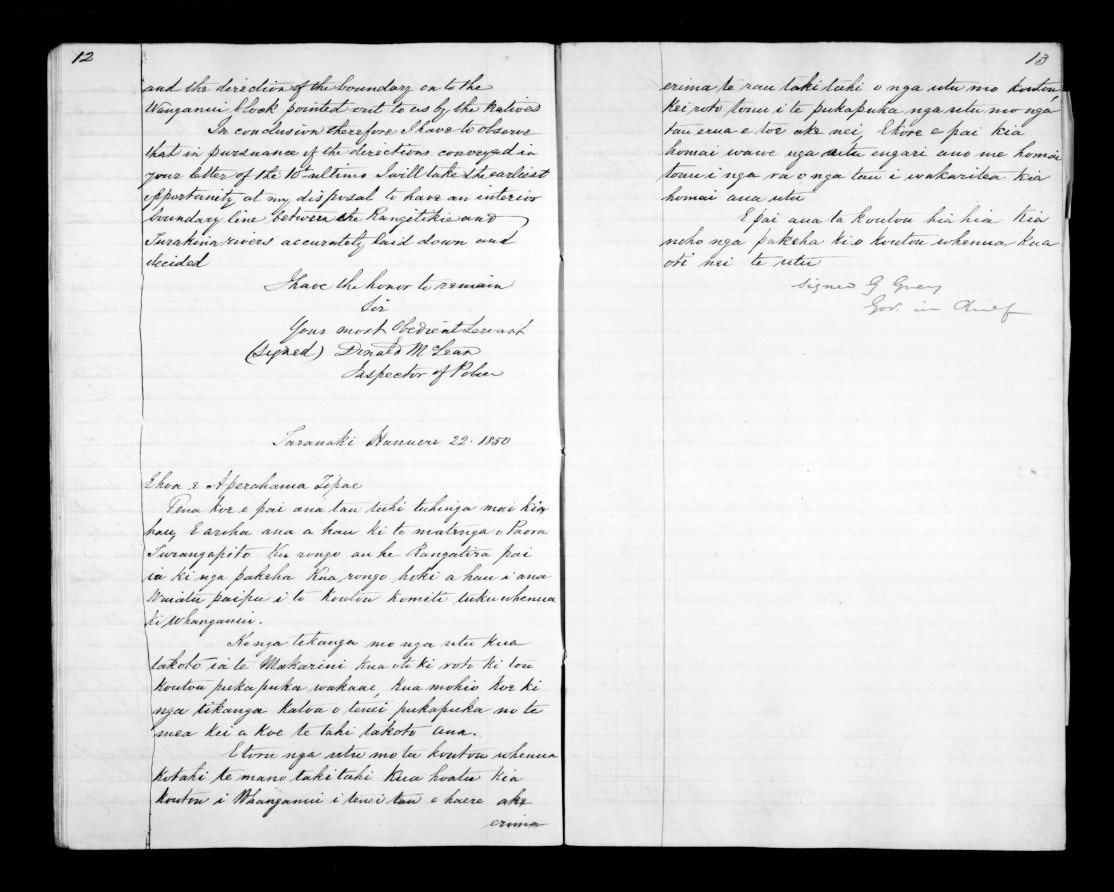 12
and the direction of the boundary on to the
Wanganui block pointed out to us by the Natives
In conclusion therefore I have to observe
that in pursuance of the directions conveyed in
your letter of the 10th ultimo I will take the earliest
opportunity at my disposal to have an interior
boundary line between the Rangitikie and
Turakina rivers accurately laid down and
decided
I have the honor to remain
Sir
Your most Obedient Servant
(signed) Donald McLean
Inspector of Police
Taranaki Hanuere 22. 1850
Ehoa e Aperahama Tipae
Tena koe e pai ana tau tuhi tuhinga mai kia
hau, E aroha ana a hau ki te matenga o Paora
Turangapito Kua rongo au he Rangatira pai
ia ki nga pakeha Kua rongo hoki a hau i ana
paipu i to koutou komite tuku whenua
ki Whanganui.
Ko nga tikanga mo nga utu kua
takoto ia te Makarini kua oti ki roto ki tou
koutou pukapuka wakaae, kua mohio koe ki
nga tikanga katoa o tenei pukapuka no te
mea kei a koe te tahi takoto ana.
E toru nga utu mo tu koutou whenua
kotahi te mano taki tahi kua hoatu kia
koutou i Whanganui i tenei tau e haere ake
erima
13
erima te rau taki tahi o nga utu mo koutou
kei roto tonu i te pukapuka nga utu mo nga
tau erua e toe ake nei, Ekore e pai kia
homai wawe nga utu engari ano me homai
tonu i nga ra o nga tau i wakaritea kia
homai ana utu
E pai ana ta koutou hia hia kia
noho nga pakeha ki o koutou whenua kua
oti nei te utu
signed G Grey
Gov. in Chief